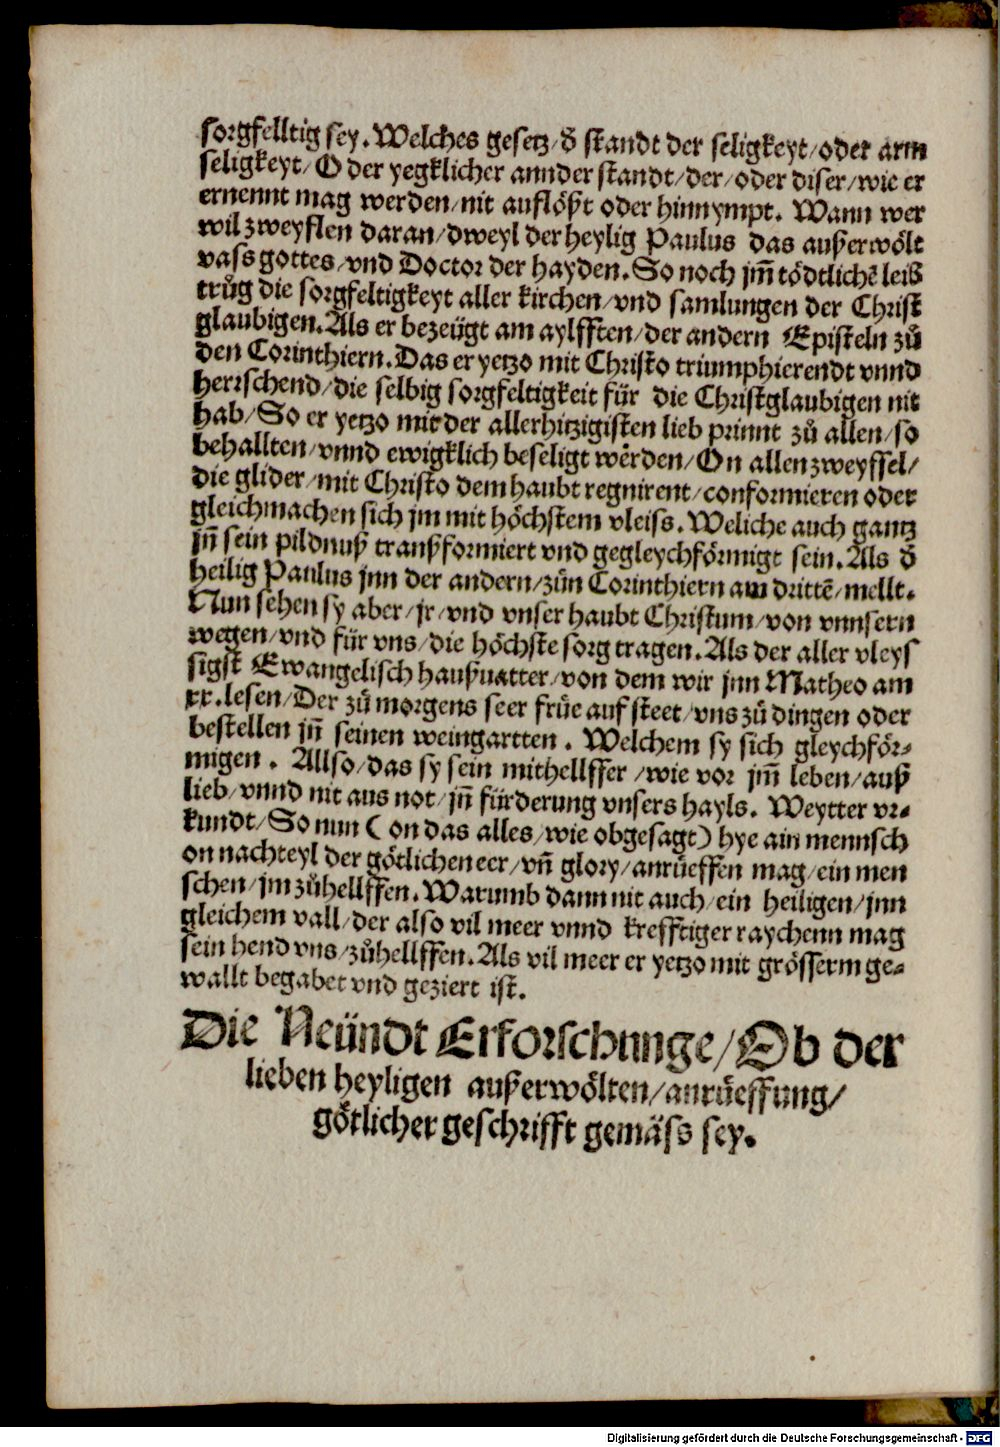 sorgfelltig sey. Welches gesetz/ d̕ standt der seligkeyt/ oder arm
seligkeyt/ O der yegklicher annder standt/ der/ oder diser/ wie er
ernennt mag werden/ nit auflößt oder hinnympt. Wann wer
wil zweyflen daran/ dweyl der heylig Paulus das außerwölt
vass gottes/ vnd Doctor der hayden. So noch jm̃ tödtlichẽ leib
trůg die sorgfeltigkeyt aller kirchen/ vnd samlungen der Christ
glaubigen. Als er bezeügt am aylfften/ der andern Episteln zů
den Corinthiern. Das er yetzo mit Christo triumphierendt vnnd
herrschend/ die selbig sorgfeltigkeit für die Christglaubigen nit
hab/ So er yetzo mit der allerhitzigisten lieb prinnt zů allen/ so
behallten/ vnnd ewigklich beseligt werden/ On allen zweyffel/
die glider/ mit Christo dem haubt regnirent/ conformieren oder
gleichmachen sich jm mit höchstem vleiss. Weliche auch gantz
jñ sein pildnuß tranßformiert vnd gegleychförmigt sein. Als d̕
heilig Paulus jnn der andern/ zůn Corinthiern am drittẽ/ mellt.
Nun sehen sy aber/ jr/ vnd vnser haubt Christum/ von vnnsern
wegen/ vnd für vns/ die höchste sorg tragen. Als der aller vleys
sigst Ewangelisch haußuatter/ von dem wir jnn Matheo am
xx. lesen/ Der zů morgens seer früe auf steet/ vns zů dingen oder
bestellen jñ seinen weingartten. Welchem sy sich gleychför⸗
migen. Allso/ das sy sein mithellffer/ wie vor jm̃ leben/ auß
lieb/ vnnd nit aus not/ jñ fürderung vnsers hayls. Weytter vr⸗
kundt/ So nun ( on das alles/ wie obgesagt) hye ain mennsch
on nachteyl der götlichen eer/ vñ glory/ anrůeffen mag/ ein men
schen/ jm zůhellffen. Warumb dann nit auch/ ein heiligen/ jnn
gleichem vall/ der also vil meer vnnd krefftiger raychenn mag
sein hend vns/ zůhellffen. Als vil meer er yetzo mit grösserm ge⸗
wallt begabet vnd geziert ist.
Die Neündt Erforschunge/ Ob der
lieben heyligen außerwölten/ anrůeffung/
götlicher geschrifft gemäss sey.
Digitalisierung gefördert durch die Deutsche Forschungsgemeinschaft - DFG